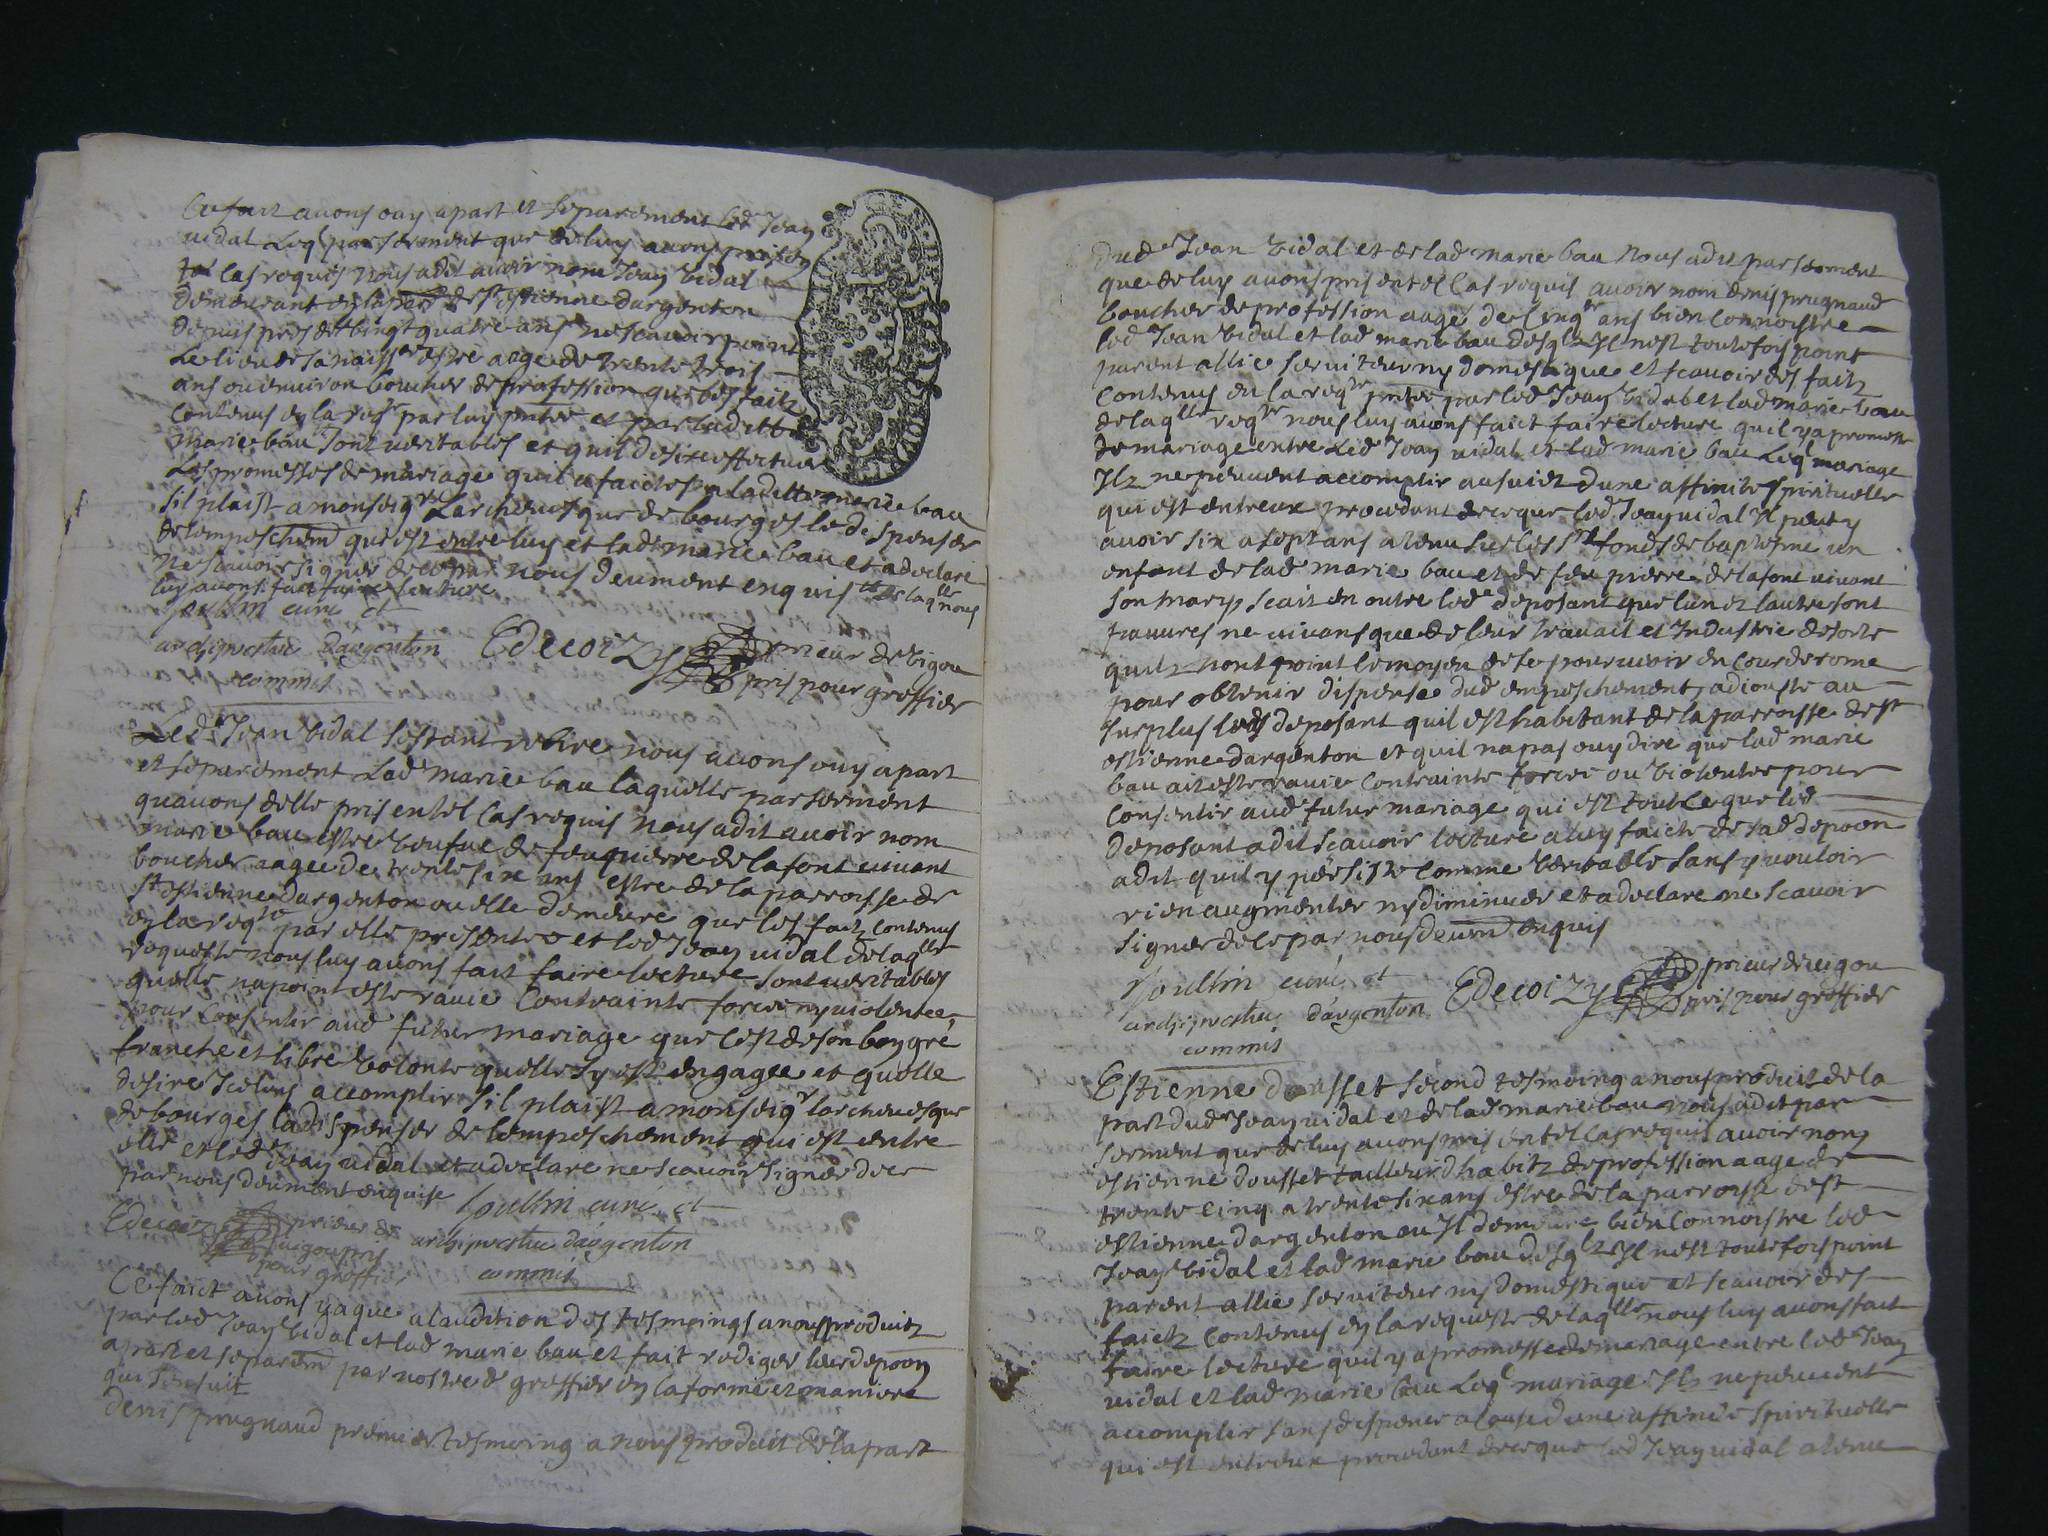 Ce faict avons ouy apart et separement led Jean
vidal Leql par serment que de luy avons pris en
tel cas requis nous a dit avoir nom Jean vidal
demeurant en la par de st estienne dargenton
depuis pres de vingt quatre ans ne scavoir point
Le lieu de sa naissce estre aage de trente trois
ans ou environ boucher de profession que les faitz
contenus en la reqte par luy pntee et par laditte
marie bau sont veritables et quil desire effectuer
Les promesses de mariage quil a faictes a laditte marie bau
sil plaist a monseigr Larchevesque de bourges le dispenser
de lempeschemt qui est entre luy et lad marie bau et a declare
ne scavoir signer de ce par nous deument enquis de laqlle nous
luy avons fait faire lecture
archiprestre dargenton Edecoizy prieur de vigou
commis pris pour greffier
Led Jean vidal sestant retire nous avons ouy apart
et separement Lad marie bau laquelle par serment
quavons delle pris en tel cas requis nous a dit avoir nom
marie bau estre veufve de feu pierre de lafont vivant
boucher aagee de trente six ans estre de la parroisse de
st estienne dargenton ou elle demeure que les faitz contenus
en la reqte par elle presentee et led Jean vidal de laqlle
requeste nous luy avons fait faire lecture sont veritables
quelle na point este ravie contrainte forcee ny violentee
pour consentir aud futur mariage que cest de son bon gre
franche et libre volonte quelle sy est engagee et quelle
desire Iceluy accomplir sil plaist a monseigr larchevesque
de bourges la dispenser de lempeschement qui est entre
elle et led Jean vidal et a declare ne scavoir signer de ce
par nous deument enquise curé et
Edecoizy prieur de archiprestre dargenton
vigou pris
pour greffier commis
Ce faict avons vaque a laudition des tesmoings a nous produitz
par led Jean vidal et lad marie bau et fait rediger leur depoon
apart et separemt par nostred greffier en la forme et maniere
qui sensuit
denis prugnaud premier tesmoing a nous produit de la part
dud Jean vidal et de lad marie bau nous a dit par serment
que de luy avons pris en tel cas requis avoir nom denis prugnaud
boucher de profession aage de cinqte ans bien connoistre
led Jean vidal et lad marie bau desqlz Il nest toutefois point
parent allie serviteur ny domestique et scavoir des faitz
contenus en la reqte pntee par led Jean vidal et lad marie bau
de laqlle reqte nous luy avons faict faire lecture quil y a promesse
de mariage entre Led Jean vidal et lad marie bau Leql mariage
Ilz ne peuvent accomplir au suiet dune affinite spirituelle
qui est entreux procedant de ce que led Jean vidal Il peut y
avoir six a sept ans a tenu sur les sts fonds de baptesme un
enfant de lad marie bau et de feu pierre de lafont vivant
son mary scait en outre led deposant que lun et lautre sont
pauvres ne vivans que de leur travail et Industrie de sorte
quilz nont point le moyen de se pourvoir en cour de rome
pour obtenir dispense dud empeschement adiouste au
surplus led deposant quil est habitant de la parroisse de st
estienne dargenton et quil na pas ouy dire que lad marie
bau ait este ravie contrainte forcee ou violentee pour
consentir aud futur mariage qui est tout ce que led
deposant a dit scavoir lecture a luy faicte de sad depoon
a dit quil y persiste comme veritable sans y vouloir
rien augmenter ny diminuer et a declare ne scavoir
signer de ce par nous deuemt enquis
curé et Edecoizy prieur de vigou
archiprestre dargenton pris pour greffier
commis
Estienne dousset second tesmoing a nous produit de la
part dud Jean vidal et de lad marie bau nous a dit par
serment que de luy avons pris en tel cas requis avoir nom
estienne dousset tailleur dhabitz de profession aage de
trente cinq a trente six ans estre de la parroisse de st
estienne dargenton ou Il demeure bien connoistre led
Jean vidal et lad marie bau desqlz Il nest toutefois point
parent allie serviteur ny domestique et scavoir des
faictz contenus en la requeste de laqlle nous luy avons fait
faire lecture quil y a promesse de mariage entre led Jean
vidal et lad marie bau Leql mariage Ilz ne peuvent
accomplir sans dispence a cause dune affinite spirituelle
qui est entreux procedant de ce que led Jean vidal a tenu